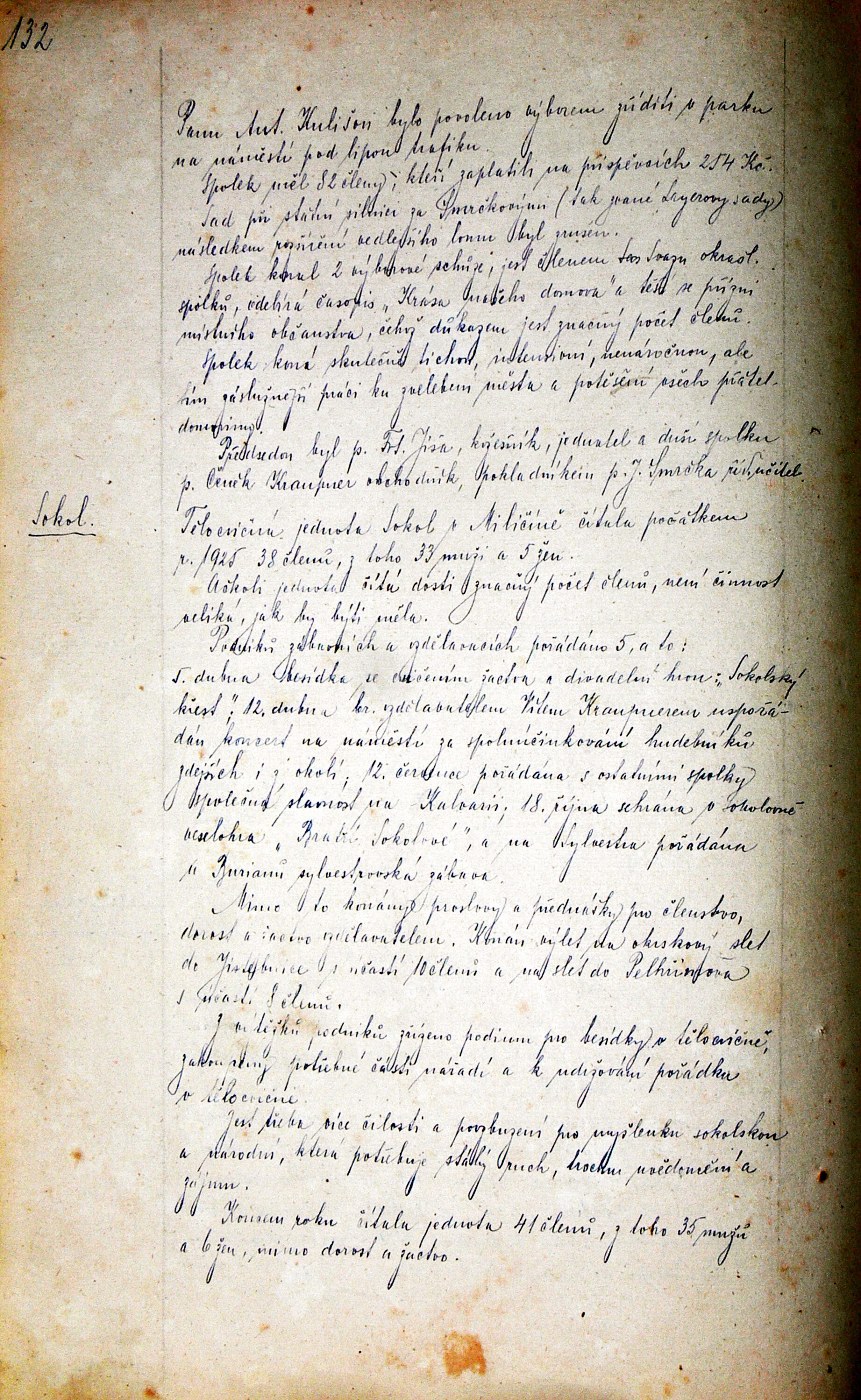 132
Panu Ant. Kulišovi bylo povoleno výborem zříditi v parku
na náměstí pod lipou trafiku.
Spolek měl 82 členy, kteří zaplatili na příspěvcích 254 Kč.
Sad při státní silnici za Smrčkovými (tak zvané Layerovy sady)
následkem rozšíření vedlejšího lomu byl zrušen.
Spolek konal 2 výborové schůze, jest členem Svazu okrašl.
spolků, odebírá časopis „Krása našeho domova" a těší se přízni
místního občanstva, čehož důkazem jest značný počet členů.
Spolek koná skutečně tichou, intensivní, nenáročnou, ale
tím záslužnější práci ku zvelebení města a potěšení všech přátel
domoviny.
Předsedou byl p. Frt. Jíša, kožešník, jednatel a duší spolku
p. Čeněk Kraupner obchodník, pokladníkem p. J. Smrčka říd. učitel.
Sokol.
Tělocvičná jednota Sokol v Miličíně čítala počátkem
r. 1925 38 členů, z toho 33 muži a 5 žen.
Ačkoli jednota čítá dosti značný počet členů, není činnost
veliká, jak by býti měla.
Podniků zábavních a vzdělavacích pořádáno 5, a to:
5. dubna besídka se cvičením žactva a divadelní hrou: „Sokolský
křest", 12. dubna br. vzdělavatelem Vítem Kraupnerem uspořá-
dán konzert na náměstí za spoluúčinkování hudebníků
zdejších i z okolí, 12. července pořádána s ostatními spolky
společná slavnost na Kalvarii, 18. října sehrána v sokolovně
veselohra „Bratří Sokolové", a na Sylvestra pořádána
u Burianů sylvestrovská zábava.
Mimo to konány proslovy a přednášky pro členstvo,
dorost a žactvo vzdělavatelem. Konán výlet na okrskový slet
do Jistebnice s účastí 10 členů a na slet do Pelhřimova
s účastí 8 členů.
Z výtěžků podniků zřízeno podium pro besídky v tělocvičně,
zakoupeny potřebné části nářadí a k udržování pořádku
v tělocvičně.
Jest třeba více čilosti a povzbuzení pro myšlenku sokolskou
a národní, která potřebuje stálý ruch, trochu uvědomění a
zájmu.
Koncem roku čítala jednota 41 členů, z toho 35 mužů
a 6 žen, mimo dorost a žactvo.